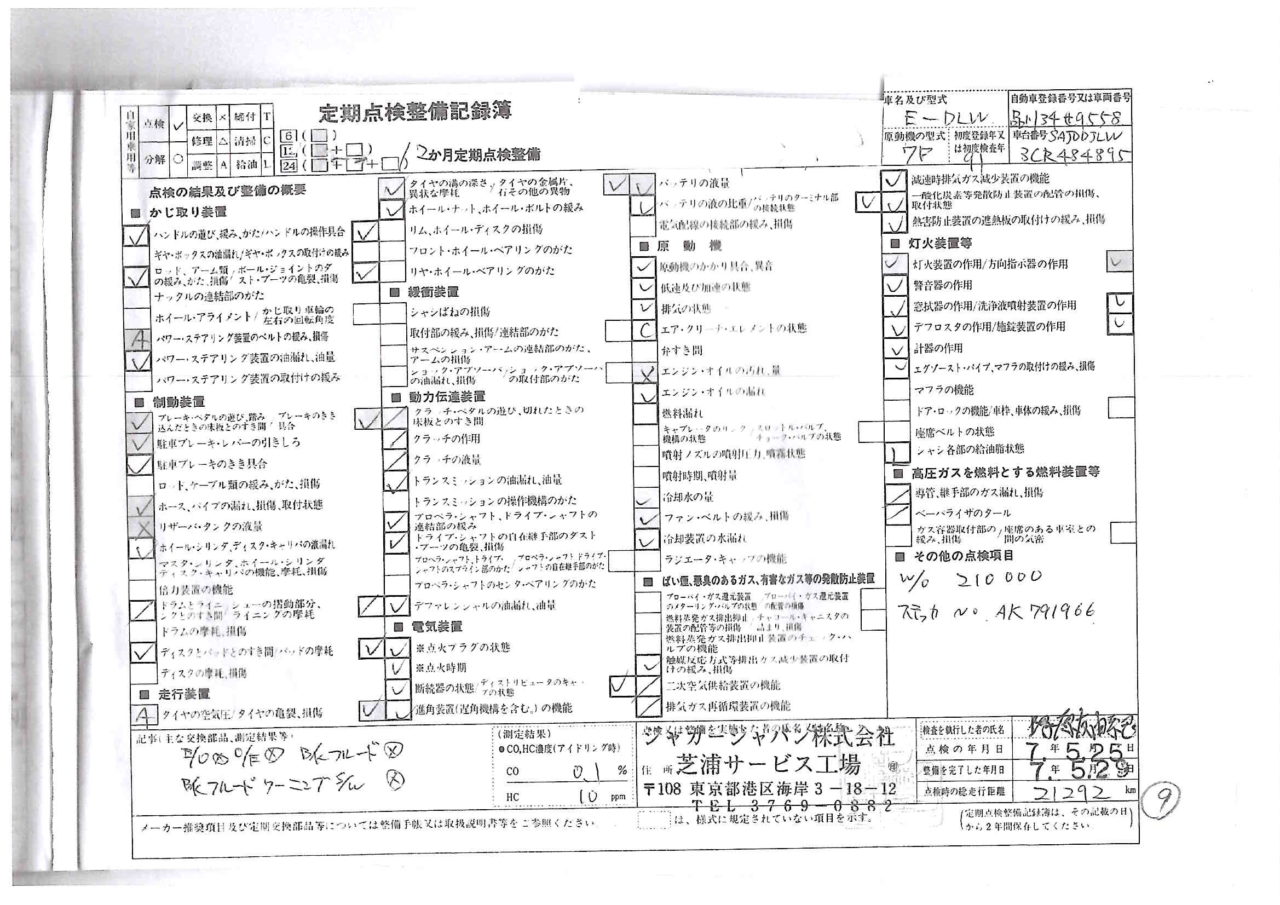 定期点検整備記録簿
自家用乗用等
点検 ✓ 交換 × 締付 T
修理 △ 清掃 C
分解 ○ 調整 A 給油 L
6
12
24
12か月定期点検整備
車名及び型式
E-DLW
自動車登録番号又は車両番号
原動機の型式
初度登録年又は初度検査年
91
車台番号 SAJDD3LW
3CR484895
点検の結果及び整備の概要
■ かじ取り装置
ハンドルの遊び、緩み、がた/ハンドルの操作具合
ギヤ・ボックスの油漏れ/ギヤ・ボックスの取付けの緩み
ロッド、アーム類の緩み、がた、損傷/ボール・ジョイントのダスト・ブーツの亀裂、損傷
ナックルの連結部のがた
ホイール・アライメント/かじ取り車輪の左右の回転角度
A パワー・ステアリング装置のベルトの緩み、損傷
パワー・ステアリング装置の油漏れ、油量
パワー・ステアリング装置の取付けの緩み
■ 制動装置
ブレーキ・ペダルの遊び、踏み込んだときの床板とのすき間/ブレーキのきき具合
駐車ブレーキ・レバーの引きしろ
駐車ブレーキのきき具合
ロッド、ケーブル類の緩み、がた、損傷
ホース、パイプの漏れ、損傷、取付状態
× リザーバ・タンクの液量
ホイール・シリンダ、ディスク・キャリパの液漏れ
マスタ・シリンダ、ホイール・シリンダ、ディスク・キャリパの機能、摩耗、損傷
倍力装置の機能
ドラムとライニングとのすき間/シューの摺動部分、ライニングの摩耗
ドラムの摩耗、損傷
ディスクとパッドとのすき間/パッドの摩耗
ディスクの摩耗、損傷
■ 走行装置
A タイヤの空気圧/タイヤの亀裂、損傷
タイヤの溝の深さ、異状な摩耗/タイヤの金属片、石その他の異物
ホイール・ナット、ホイール・ボルトの緩み
リム、ホイール・ディスクの損傷
フロント・ホイール・ベアリングのがた
リヤ・ホイール・ベアリングのがた
■ 緩衝装置
シャシばねの損傷
取付部の緩み、損傷/連結部のがた
サスペンション・アームの連結部のがた、アームの損傷
ショック・アブソーバの油漏れ、損傷/ショック・アブソーバの取付部のがた
■ 動力伝達装置
クラッチ・ペダルの遊び、切れたときの床板とのすき間
クラッチの作用
クラッチの液量
トランスミッションの油漏れ、油量
トランスミッションの操作機構のがた
プロペラ・シャフト、ドライブ・シャフトの連結部の緩み
ドライブ・シャフトの自在継手部のダスト・ブーツの亀裂、損傷
プロペラ・シャフト、ドライブ・シャフトのスプライン部のがた/プロペラ・シャフト、ドライブ・シャフトの自在継手部のがた
プロペラ・シャフトのセンタ・ベアリングのがた
デファレンシャルの油漏れ、油量
■ 電気装置
※点火プラグの状態
※点火時期
断続器の状態/ディストリビュータのキャップの状態
進角装置(遅角機構を含む。)の機能
バッテリの液量
バッテリの液の比重/バッテリのターミナル部の接続状態
電気配線の接続部の緩み、損傷
■ 原動機
原動機のかかり具合、異音
低速及び加速の状態
排気の状態
C エア・クリーナ・エレメントの状態
弁すき間
× エンジン・オイルの汚れ、量
エンジン・オイルの漏れ
燃料漏れ
キャブレータのリンク機構の状態/スロットル・バルブ、チョーク・バルブの状態
噴射ノズルの噴射圧力、噴霧状態
噴射時期、噴射量
冷却水の量
ファン・ベルトの緩み、損傷
冷却装置の水漏れ
ラジエータ・キャップの機能
■ ばい煙、悪臭のあるガス、有害なガス等の発散防止装置
ブローバイ・ガス還元装置のメターリング・バルブの状態/ブローバイ・ガス還元装置の配管の損傷
燃料蒸発ガス排出抑止装置の配管等の損傷/チャコール・キャニスタの詰まり、損傷
燃料蒸発ガス排出抑止装置のチェック・バルブの機能
触媒反応方式等排出ガス減少装置の取付けの緩み、損傷
二次空気供給装置の機能
排気ガス再循環装置の機能
減速時排気ガス減少装置の機能
一酸化炭素等発散防止装置の配管の損傷、取付状態
熱害防止装置の遮熱板の取付けの緩み、損傷
■ 灯火装置等
灯火装置の作用/方向指示器の作用
警音器の作用
窓拭器の作用/洗浄液噴射装置の作用
デフロスタの作用/施錠装置の作用
計器の作用
エグゾースト・パイプ、マフラの取付けの緩み、損傷
マフラの機能
ドア・ロックの機能/車枠、車体の緩み、損傷
座席ベルトの状態
L シャシ各部の給油脂状態
■ 高圧ガスを燃料とする燃料装置等
導管、継手部のガス漏れ、損傷
ベーパライザのタール
ガス容器取付部の緩み、損傷/座席のある車室との間の気密
■ その他の点検項目
W/O 210000
ステッカ No AK791966
記事(主な交換部品、測定結果等)
B/Kフルード ⊗
B/Kフルード ワーニング S/W ⊗
(測定結果)
●CO,HC濃度(アイドリング時)
CO 0.1 %
HC 10 ppm
点検又は整備を実施した者の氏名又は名称
ジャガージャパン株式会社
住所 芝浦サービス工場 ㊞
〒108 東京都港区海岸3-18-12
TEL 3769-0882
は、様式に規定されていない項目を示す。
検査を執行した者の氏名
点検の年月日 7年5月25日
整備を完了した年月日 7年5月29日
点検時の総走行距離 21292 km
⑨
メーカー推奨項目及び定期交換部品等については整備手帳又は取扱説明書等をご参照ください。
(定期点検整備記録簿は、その記載の日から2年間保存してください。)